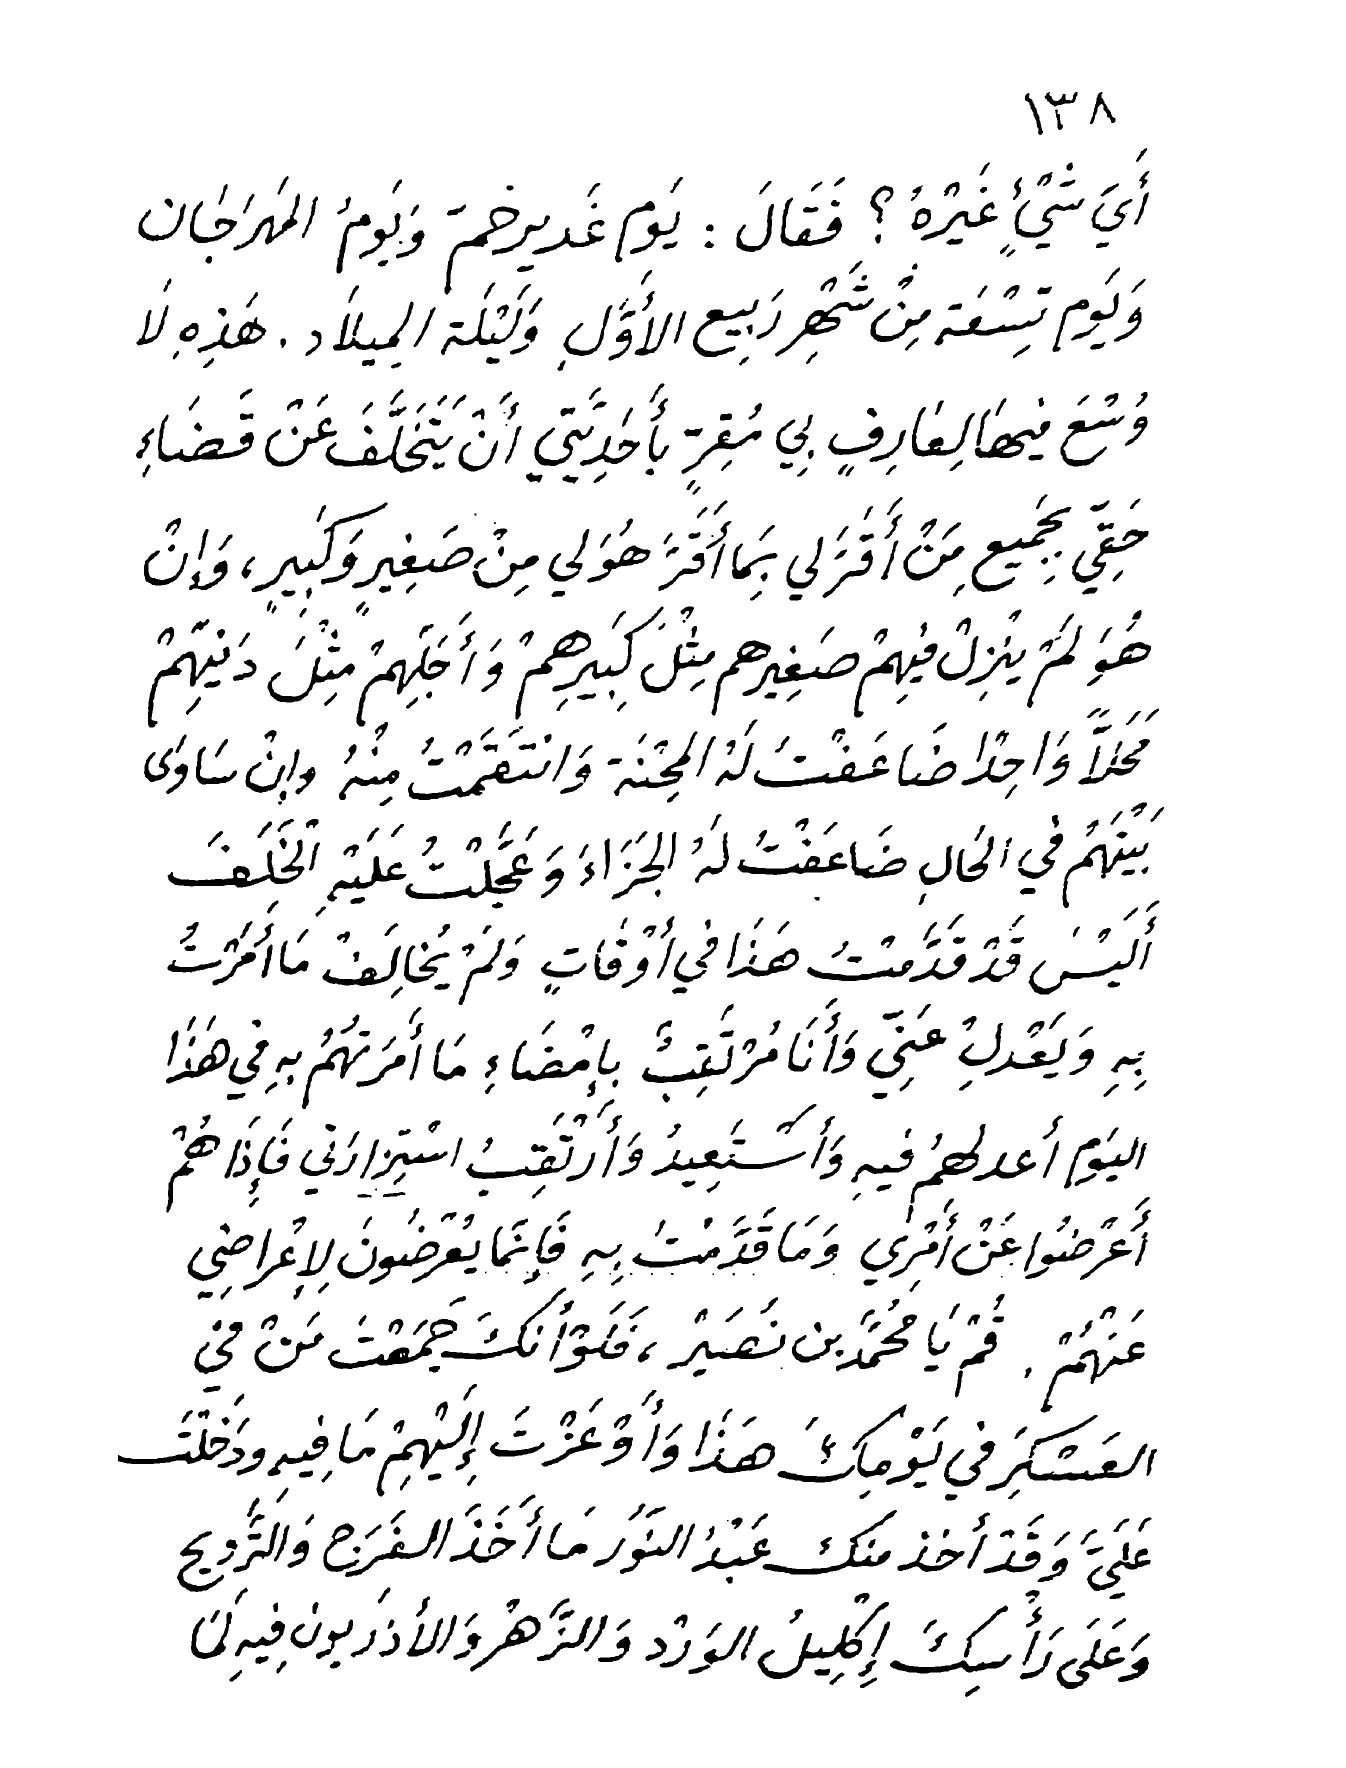 ١٣٨
أَيَ شَيْءٍ غَيْرُهُ ؟ فَقَالَ : يَوْم غَديرِخمّ وَيَومُ المَهرَجَان
وَيَوم تِسْعَة مِنْ شَهْرِ رَبِيع الأَوَّلِ وَلَيْلَة المِيلَاد . هَذِهِ لَا
وُسْعَ فيهَا لِعَارِفٍ بِي مُقِرٍّ بأَحَدِيَّتِي أَنْ يَتَخَلَّفَ عَنْ قَضَاءِ
حَقِّي بِجَمِيعِ مَنْ أَقَرَ لي بِمَا أَقَرَ هُوَ لي مِنْ صَغِيرٍ وَكَبِيرٍ ، وَإِنْ
هُوَ لَمْ يُنْزِلْ فِيهِمْ صَغِيرهم مِثْلَ كَبِيرِهِمْ وَأَجَلِّهِمْ مِثْلَ دَنِيِّهِمْ
مَحَلاًّ وَاحِدًا ضَاعَفْتُ لَهُ المِحْنَةَ وَانْتَقَمْتُ مِنْهُ وإِنْ سَاوَى
بَيْنَهُمُ في الحَالِ ضَاعَفْتُ لَهُ الجَزَاءَ وَعَجَّلْتُ عَلَيْهِ الْخَلَفَ
أَلَيْسَ قَدْ قَدَّمْتُ هَذَا في أَوْقَاتٍ وَلَمْ يُخَالِفْ مَا أَمَرْتُ
بِهِ وَيَعْدِلْ عَنِّي وَأَنَا مُرْتَقِبٌ بِإِمْضَاءِ مَا أَمَرَتهُمُ بِهِ في هَذَا
اليَومِ أعدلهمُ فيهِ وَأَسْتَعِيدُ وَأَرْتَقِبُ اسْتِزَارَني فَإِذَا هُمْ
أَعْرَضُوا عَنْ أَمْرِي وَمَا قَدَّمْتُ بِهِ فَإِنَّمَا يُعْرَضُونَ لِإِعْراضِي
عَنْهُمْ . قُمْ يَا مُحَمَّدَ بن نُصَيْر ، فَلَوْ أَنكَ جَمَعْتَ مَنْ في
العَسْكَرِ في يَوْمِكَ هَذَا وَأَوْعَزْتَ إِلَيْهِمْ مَا فِيهِ ودَخَلْتَ
عَلَيَّ وَقَدْ أخذ منكَ عَبْدُ النّورَ مَا أَخَذَ الفَرَج وَالتَّرويح
وَعَلَى رَأْسِكَ إِكْلِيلُ الوَرْد وَالزَّهْر وَالأذَريون فِيهِ لَمَا